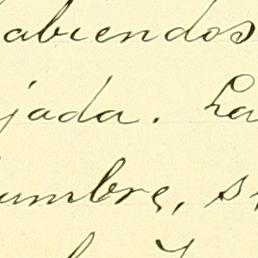 abiendos
jada. La
umbre, s